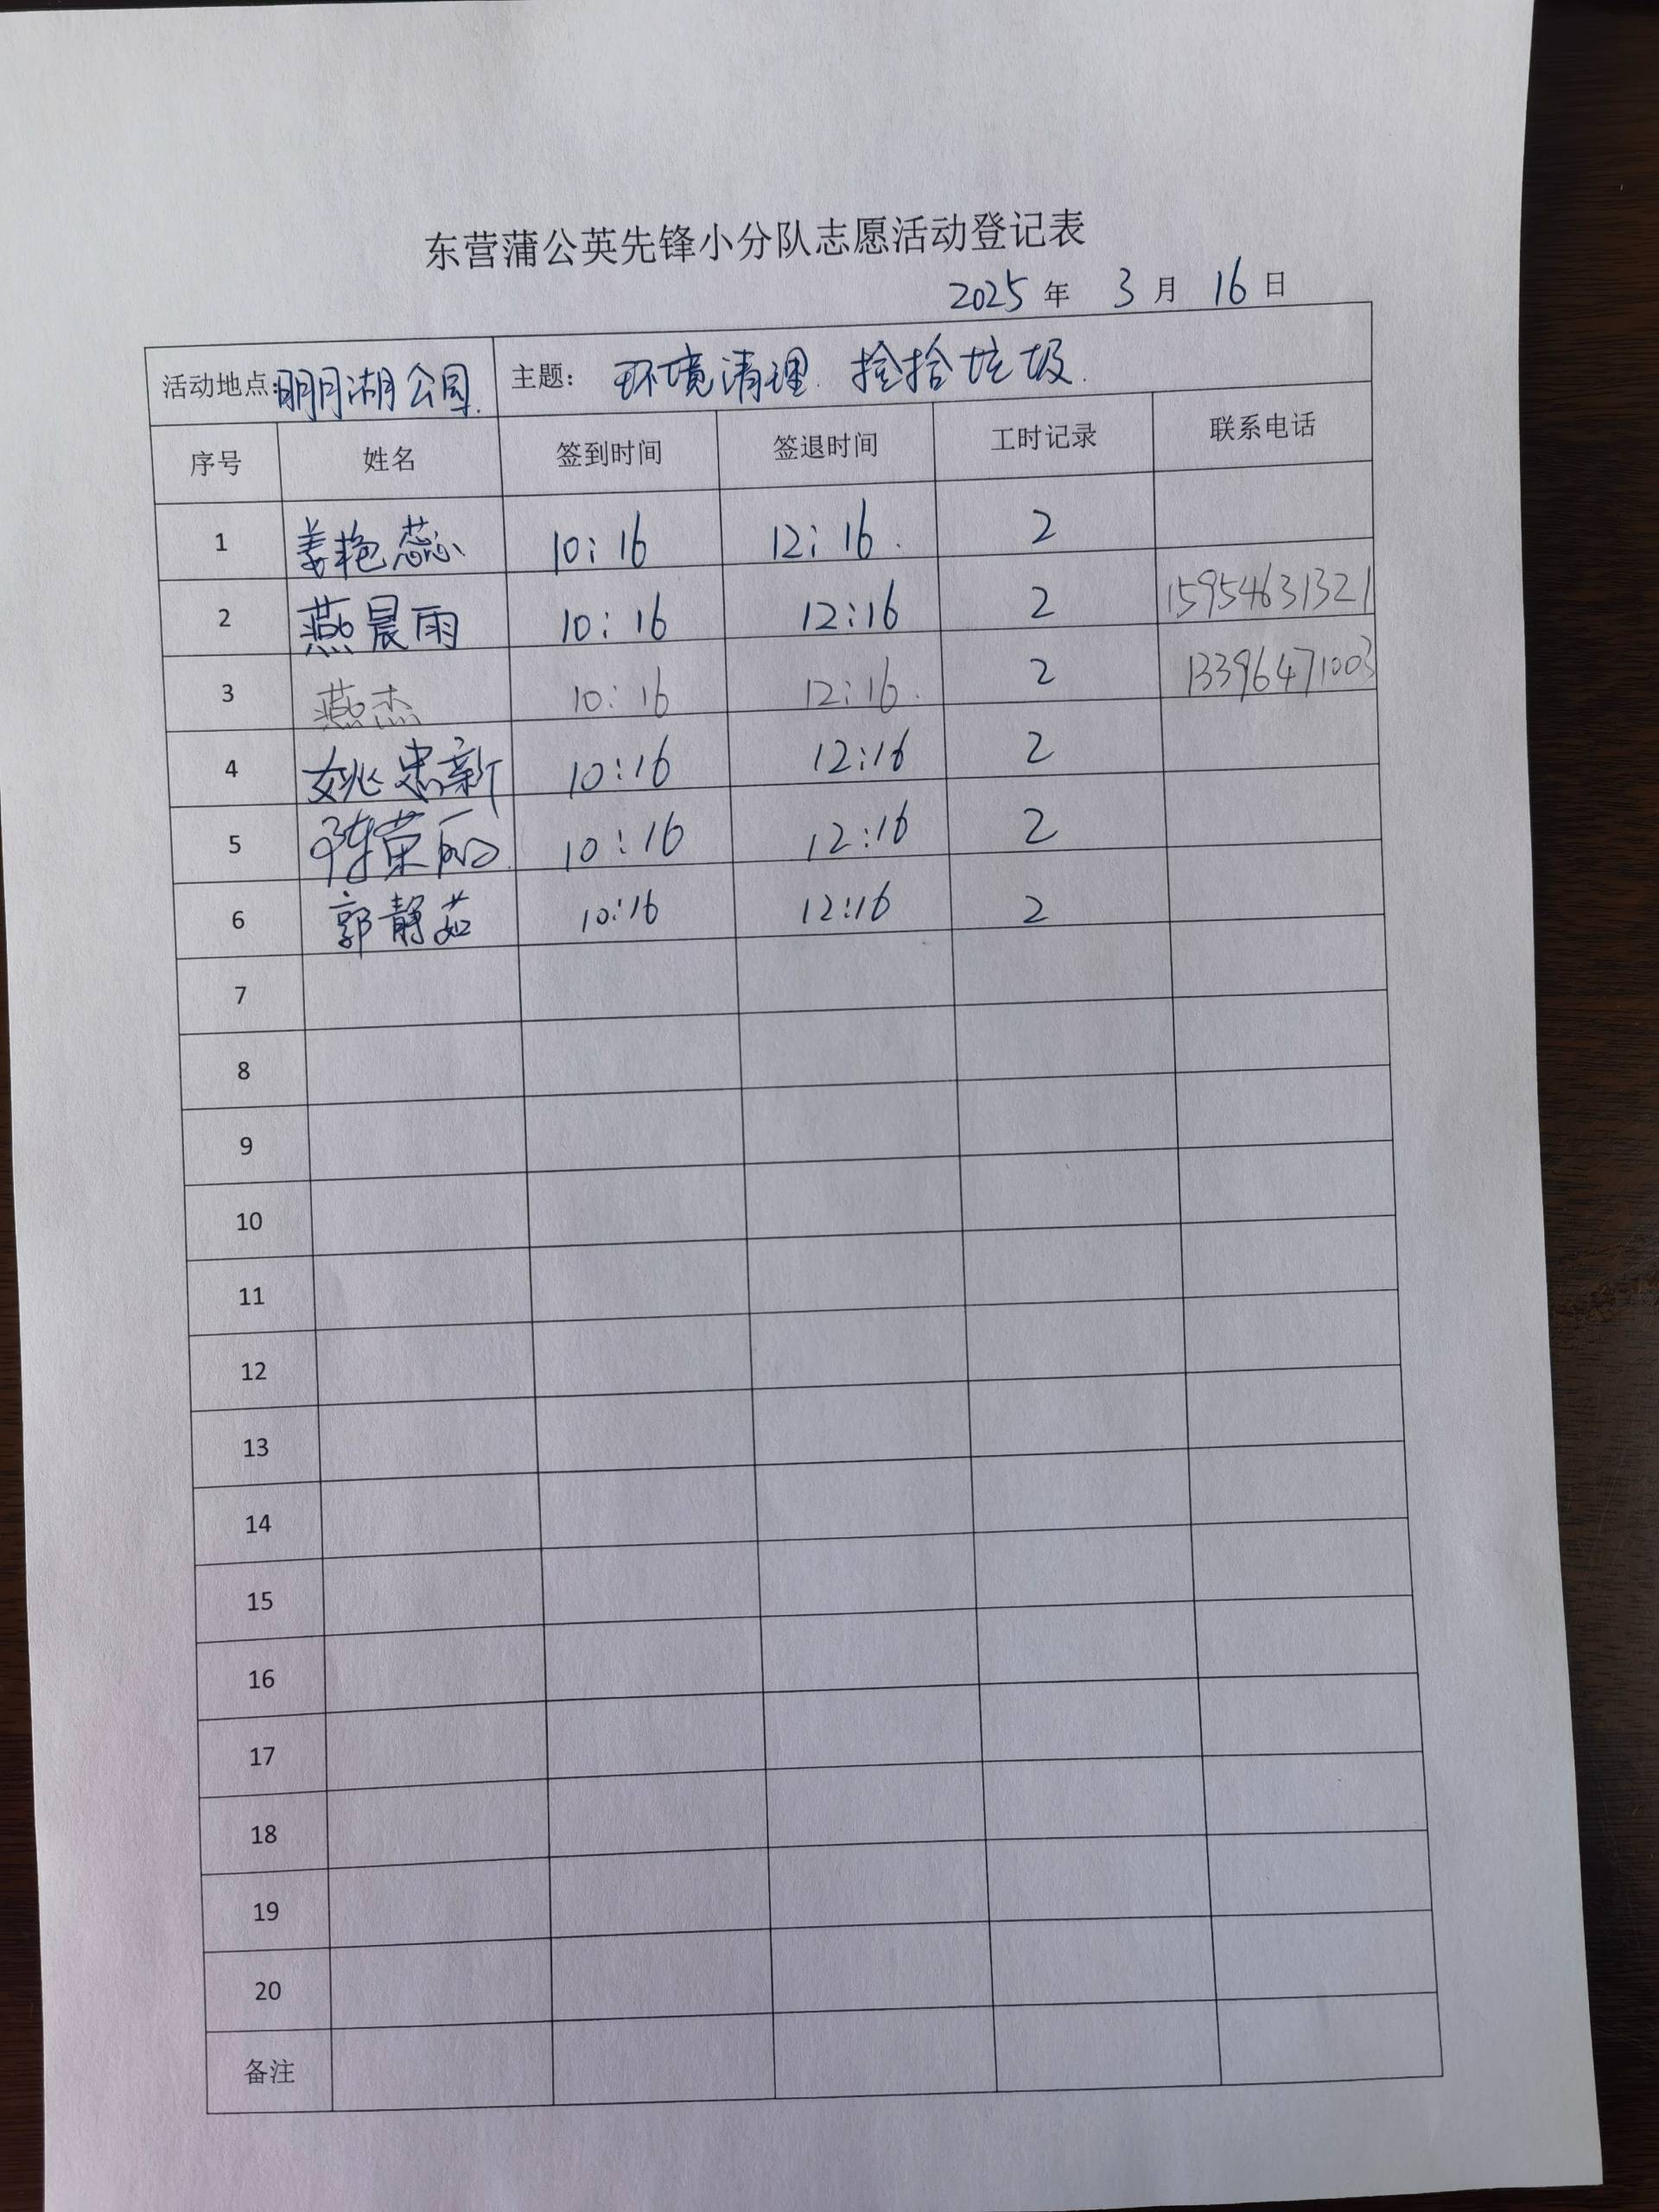 东营蒲公英先锋小分队志愿活动登记表
2025 年 3 月 16 日
活动地点:明月湖公园. 主题: 环境清理. 捡拾垃圾.
序号 姓名 签到时间 签退时间 工时记录 联系电话
1 姜艳蕊 10:16 12:16. 2
2 燕晨雨 10:16 12:16 2 15954631321
3 燕杰 10:16 12:16. 2 13396471003
4 姚忠新 10:16 12:16 2
5 陈荣丽 10:16 12:16 2
6 郭静茹 10:16 12:16 2
7
8
9
10
11
12
13
14
15
16
17
18
19
20
备注